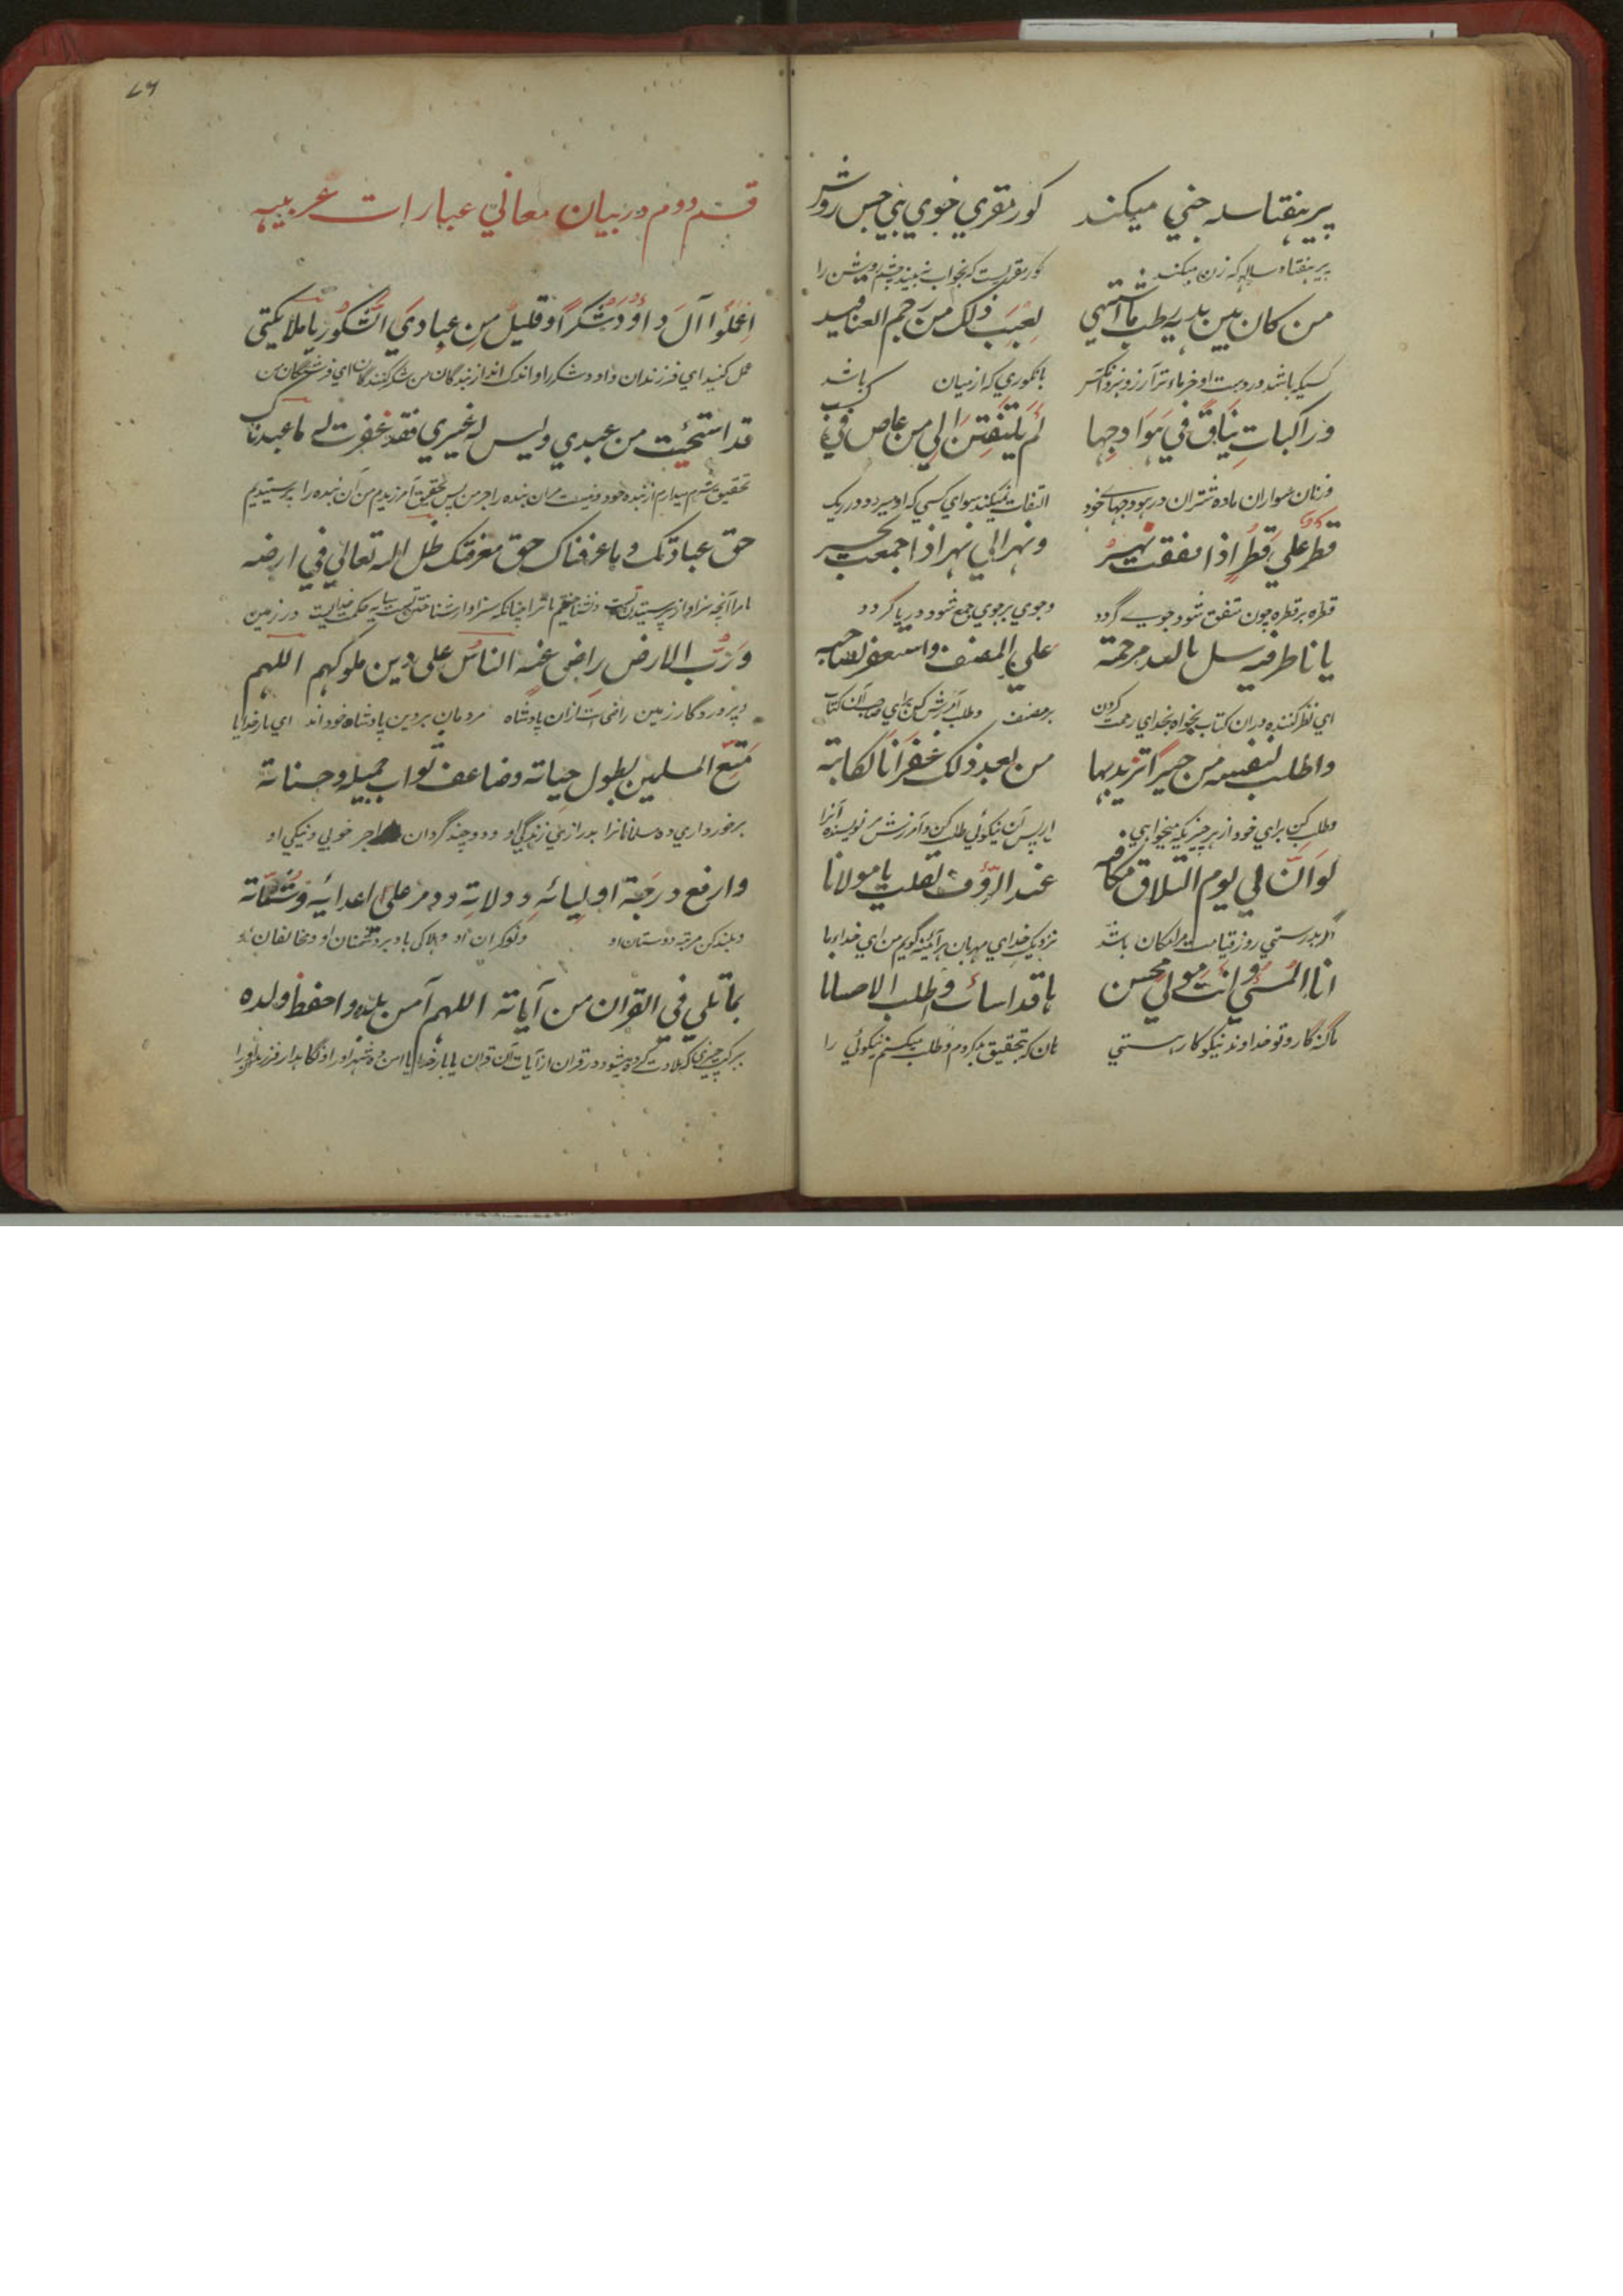 پیر هفتا سله جنی میکند کور مقری خوی بنی جس روش
پیر هفتاد ساله که زن میکند کور مقریست که بخواب نه بیند چشم روشن را
من کان بین یدیه رطب ما اشتهی لعبب ذلک من رجم العناقید
کسیکه باشد در دست او خرماء تر آرزو نبرد
وراکبات نیاق فی هوادجها لم یلتفتن الی من غاص فی
وزنان سواران ماده شتران در هودجهای خود التفات نمیکنند سوای کسی که او میرود در ریک
قطر علی قطر اذا اتفقت نهر ونهر الی نهر اذا اجمعت بحر
قطره بر قطره چون متفق شود جوی گردد وجوی بر جوی جمع شود دریا گردد
یا ناظر فیه سل بالله مرحمة علی المصنف واستغفر لصاحبه
ای نظر کننده در ان کتاب بخواه بخدای رحمت کردن بر مصنف وطلب آمرزش کن برای صاحب آن کتاب
واطلب لنفسه من خیرا تزید بها من بعد ذلک غفرانا لکاتبه
وطلب کن برای خود از هر چیزیکه میخواهی از پس آن نیکوئی طلب کن و آمرزش مر نویسنده آنرا
لو ان لی یوم التلاق مکانه عند الرؤف لقلت یا مولانا
اگر بدرستی روز قیامت مرا مکان باشد نزدیک خدای مهربان هر آئینه گویم من ای خداوندا
انا المسئ وانت مولی محسن ها قد اسات واطلب الاحسانا
ما گنه گار و تو خداوند نیکو کار هستی هان که بتحقیق بد کردم وطلب میکنم نیکوئی را
٤٦
قسم دوم در بیان معانی عبارات عربیه
اعملوا آل داوود شکرا وقلیل من عبادی الشکور یا ملایکتی
عمل کنید ای فرزندان داود شکر را و اندک اند از بندگان من شکر کنندگان ای فرشتگان من
قد استحیئت من عبدی ولیس له غیری فقد غفرت له ما عبدناک
تحقیق شرم میدارم از بنده خود ونیست مر ان بنده را جز من پس بتحقیق آمرزیدم من آن بنده را نه پرستیدیم
حق عبادتک وما عرفناک حق معرفتک ظل الله تعالی فی ارضه
ما را آنچه سزاوار پرستیدن تست ونشناختیم ما ترا چنانکه سزاوار شناختن تست سایه حکمت خدایست در زمین
ورب الارض راض عنه الناس علی دین ملوکهم اللهم
وپروردگار زمین راضی است ازان پادشاه مردمان بر دین پادشاه خود اند ای بار خدایا
متع المسلمین بطول حیاته وضاعف ثواب جمیله وحسناته
برخورداری ده مسلمانانرا بدرازی زندگی او ودو چند گردان اجر خوبی ونیکی او
وارفع درجة اولیائه وولاته ودمر علی اعدائه وشناته
وبلند کن مرتبه دوستان او ونوکران او وهلاکی باد بر دشمنان او ومخالفان او
بما تلی فی القران من آیاته اللهم آمن بلده واحفظ ولده